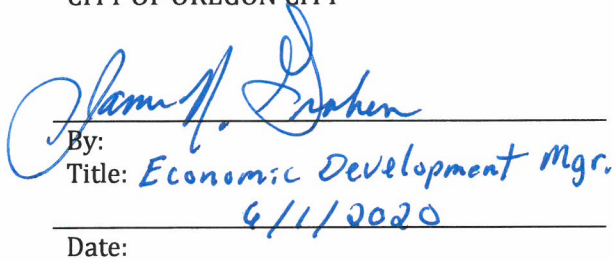 CITY OF OREGON CITY
James N. Graham
By:
Title: Economic Development Mgr.
6/1/2020
Date: